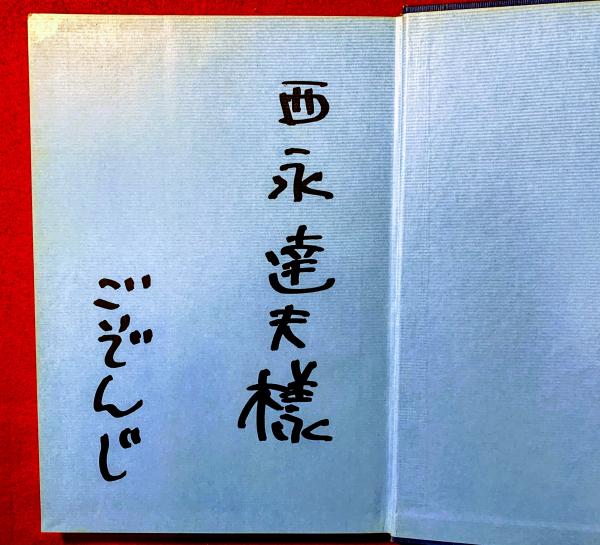 西永達夫様
ごぞんじ